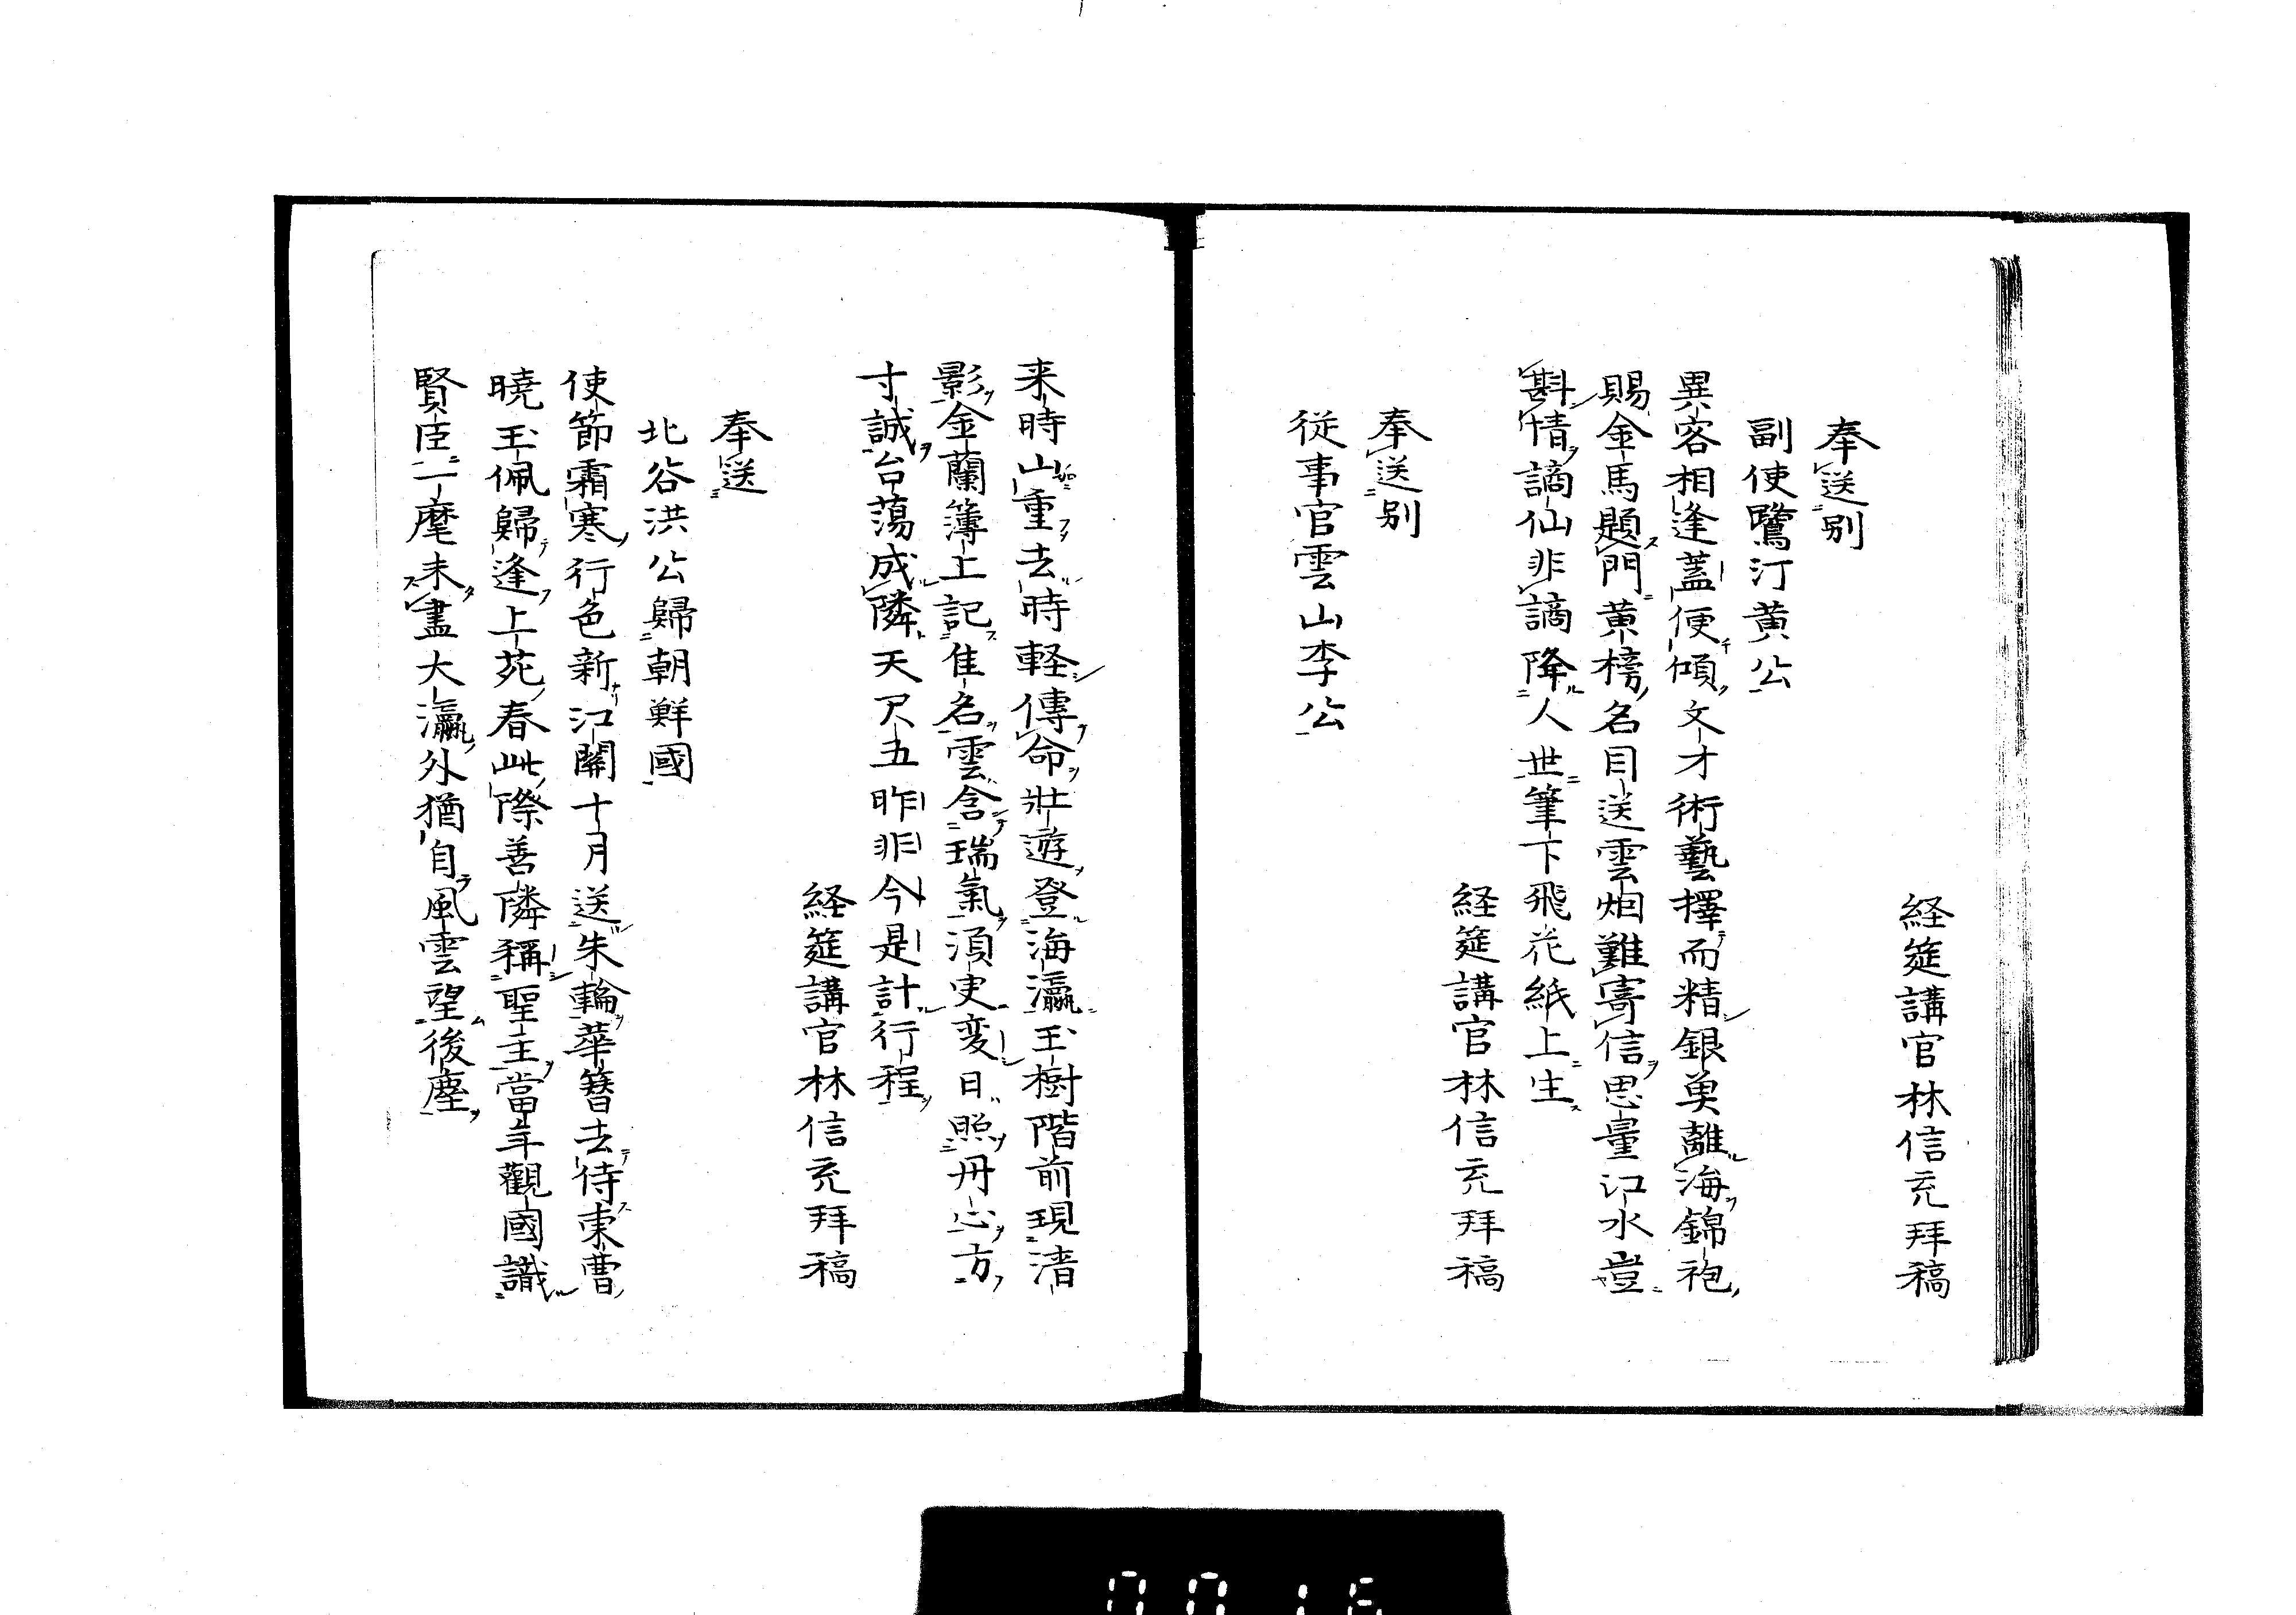 経筵講官林信充拜稿
奉送別
副使鷺汀黄公
異客相逢蓋便傾文才術藝擇而精銀奠離海錦袍
賜金馬題門黄榜名目送雲烟難寄信思量江水豈
斟情謫仙非謫降人世筆下飛花紙上生
経筵講官林信充拜稿
奉送别
従事官雲山李公
来時山重去時軽傳命壯遊登海瀛玉樹階前現清
影金蘭簿上記佳名雲含瑞氣須叓変日照丹心方
寸誠台蕩成隣天尺五昨非今是計行程
経筵講官林信充拜稿
奉送
北谷洪公歸朝鮮國
使節霜寒行色新江關十月送朱輪華簪去侍東曹
曉玉佩歸逢上苑春此際善隣稱聖主當年觀國識
賢臣一麾未盡大瀛外猶自風雲望後塵
0016